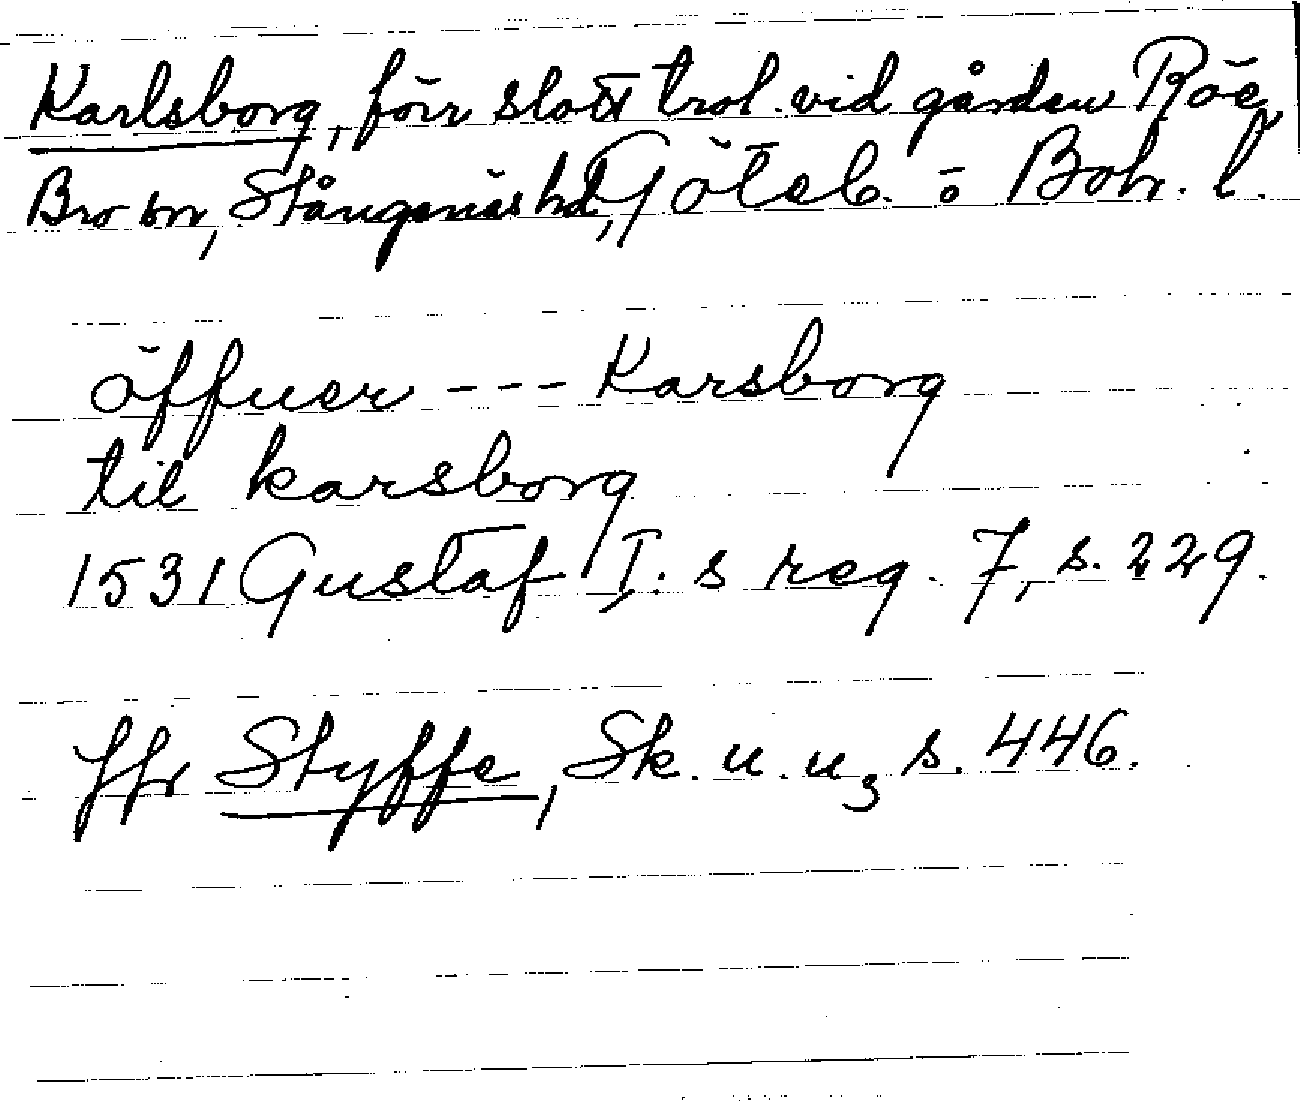 Karlsborg, förr slott trol. vid gården Röe,
Bro sn, Stångenäs hd, Göteb. o Boh. l.
öffuer --- Karsborg
til karsborg
1531 Gustaf I. s reg. 7, s. 229.
Jfr Styffe, Sk. u. u, s. 446.